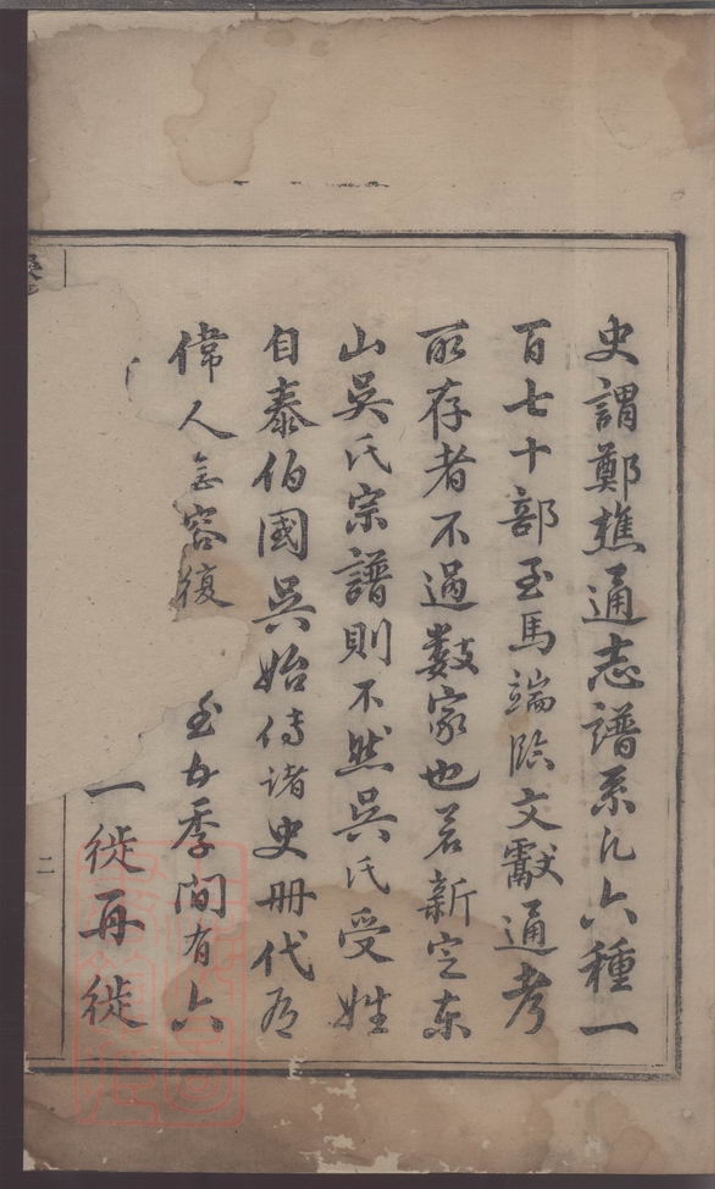 史謂鄭樵通志譜系凡六種一
百七十部至馬端臨文獻通考
所存者不過數家也若新定東
山吳氏宗譜則不然吳氏受姓
自泰伯國吳始傳諸史冊代有
偉人無容復
至五季間有六
一徙再徙
二